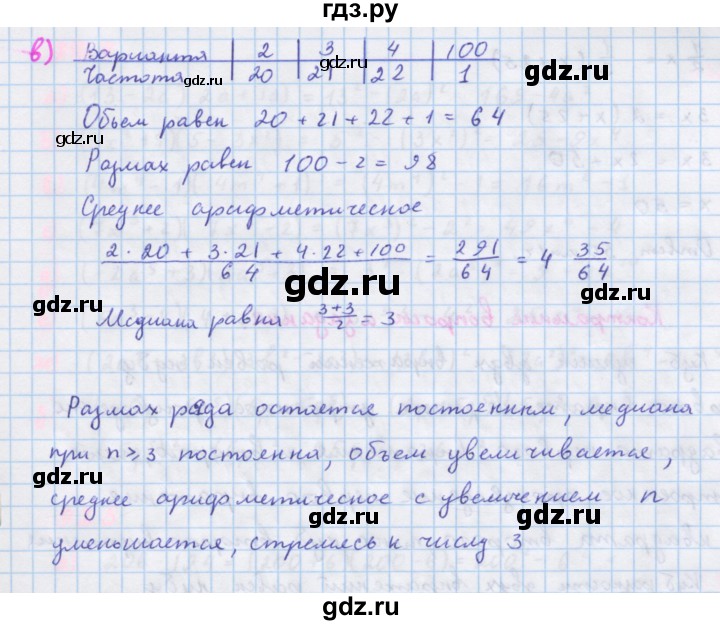 гдз.ру
в) Варианта | 2 | 3 | 4 | 100
Частота | 20 | 21 | 22 | 1
gdz.ru gdz.ru gdz.ru
gdz.ru
Объем равен 20 + 21 + 22 + 1 = 64
Размах равен 100 - 2 = 98
gdz.ru
Среднее арифметическое
2·20 + 3·21 + 4·22 + 100 / 64 = 291/64 = 4 35/64
gdz.ru gdz.ru
Медиана равна 3+3/2 = 3
Размах ряда остается постоенным, медиана
gdz.ru
при n ≥ 3 постоянна, объем увеличивается,
gdz.ru
среднее арифметическое с увелечением n
gdz.ru gdz.ru
уменьшается, стремясь к числу 3
gdz.ru